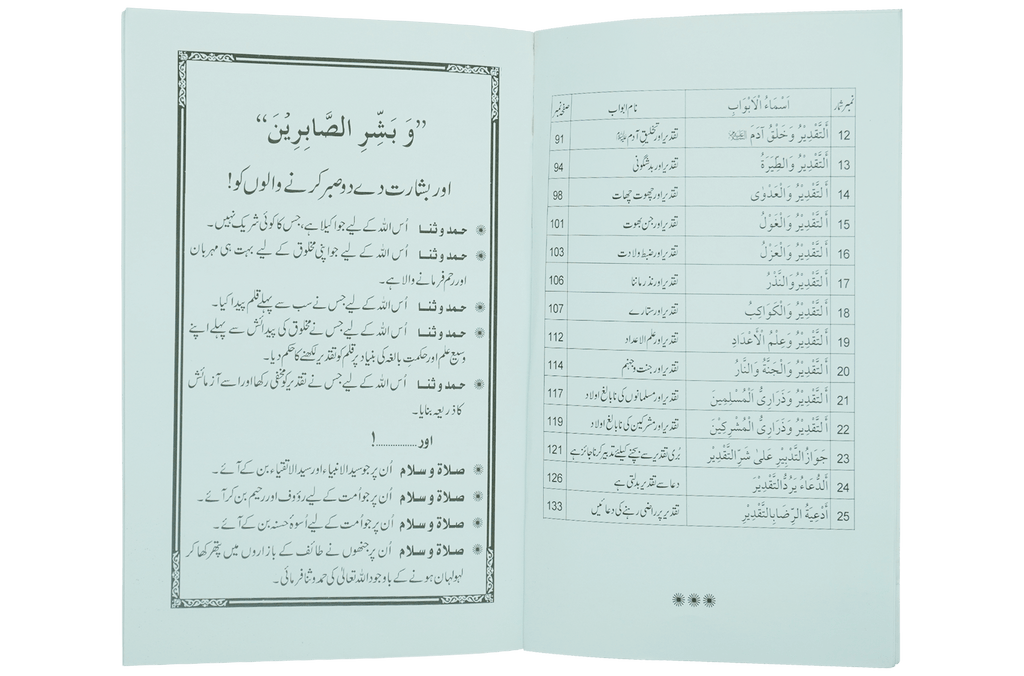 نمبر شمار اَسْمَاءُ الْاَبْوَابِ نام ابواب صفحہ نمبر
12 اَلتَّقْدِيْرُ وَخَلْقُ آدَمَ تقدیر اور تخلیق آدم 91
13 اَلتَّقْدِيْرُ وَالطِّيَرَةُ تقدیر اور بدشگونی 94
14 اَلتَّقْدِيْرُ وَالْعَدْوٰى تقدیر اور چھوت چھات 98
15 اَلتَّقْدِيْرُ وَالْغَوْلُ تقدیر اور جن بھوت 101
16 اَلتَّقْدِيْرُ وَالْعَزْلُ تقدیر اور ضبط ولادت 103
17 اَلتَّقْدِيْرُ وَالنَّذْرُ تقدیر اور نذر ماننا 106
18 اَلتَّقْدِيْرُ وَالْكَوَاكِبُ تقدیر اور ستارے 107
19 اَلتَّقْدِيْرُ وَعِلْمُ الْأَعْدَادِ تقدیر اور علم الاعداد 112
20 اَلتَّقْدِيْرُ وَالْجَنَّةُ وَالنَّارُ تقدیر اور جنت و جہنم 114
21 اَلتَّقْدِيْرُ وَذَرَارِىُّ الْمُسْلِمِينَ تقدیر اور مسلمانوں کی نابالغ اولاد 117
22 اَلتَّقْدِيْرُ وَذَرَارِىُّ الْمُشْرِكِيْنَ تقدیر اور مشرکین کی نابالغ اولاد 119
23 جَوَازُ التَّدْبِيْرِ عَلىٰ شَرِّ التَّقْدِيْرِ بُری تقدیر سے بچنے کیلئے تدبیر کرنا جائز ہے 121
24 اَلدُّعَاءُ يَرُدُّ التَّقْدِيْرَ دعا سے تقدیر بدلتی ہے 126
25 أَدْعِيَةُ الرِّضَا بِالتَّقْدِيْرِ تقدیر پر راضی رہنے کی دعائیں 133
”وَ بَشِّرِ الصَّابِرِيْنَ“
اور بشارت دے دو صبر کرنے والوں کو!
حمد و ثنا اُس اللہ کے لیے جو اکیلا ہے، جس کا کوئی شریک نہیں۔
حمد و ثنا اُس اللہ کے لیے جو اپنی مخلوق کے لیے بہت ہی مہربان
اور رحم فرمانے والا ہے۔
حمد و ثنا اُس اللہ کے لیے جس نے سب سے پہلے قلم پیدا کیا۔
حمد و ثنا اُس اللہ کے لیے جس نے مخلوق کی پیدائش سے پہلے اپنے
وسیع علم اور حکمتِ بالغہ کی بنیاد پر قلم کو تقدیر لکھنے کا حکم دیا۔
حمد و ثنا اُس اللہ کے لیے جس نے تقدیر کو مخفی رکھا اور اسے آزمائش
کا ذریعہ بنایا۔
اور..............!
صلاۃ و سلام اُن پر جو سید الانبیاء اور سید الاتقیاء بن کے آئے۔
صلاۃ و سلام اُن پر جو اُمت کے لیے رؤوف اور رحیم بن کر آئے۔
صلاۃ و سلام اُن پر جو اُمت کے لیے اُسوۂ حسنہ بن کے آئے۔
صلاۃ و سلام اُن پر جنھوں نے طائف کے بازاروں میں پتھر کھا کر
لہولہان ہونے کے باوجود اللہ تعالیٰ کی حمد و ثنا فرمائی۔